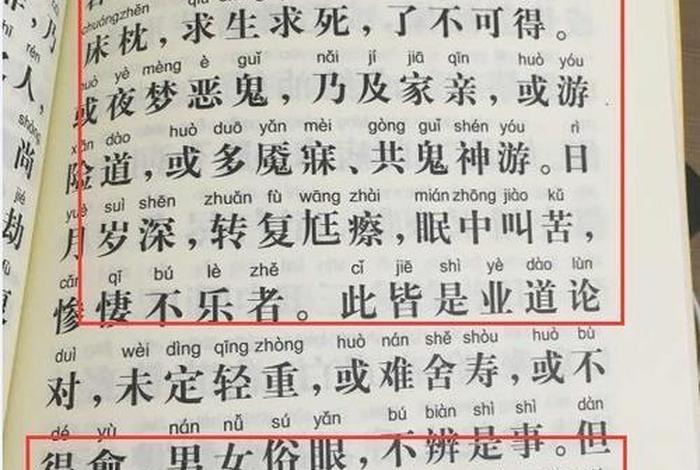 chuángzhěn qiú shēng qiú sǐ
床枕，求生求死，了不可得。
huò yè mèng è guǐ nǎi jí jiā qīn huò yóu
或夜梦恶鬼，乃及家亲，或游
xiǎn dào huò duō yǎn mèi gòng guǐ shén yóu rì
险道，或多魇寐、共鬼神游。日
yuè suì shēn zhuǎn fù wāng zhài mián zhōng jiào kǔ
月岁深，转复尪瘵，眠中叫苦，
cǎn qī bú lè zhě cǐ jiē shì yè dào lùn
惨悽不乐者。此皆是业道论
duì wèi dìng qīng zhòng huò nán shě shòu huò bù
对，未定轻重，或难舍寿，或不
dé yù nán nǚ sú yǎn bú biàn shì shì dàn
得愈，男女俗眼，不辨是事。但
rén
人，
shàng
尚
jié
劫